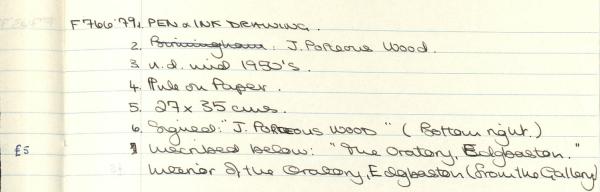 F766'79. 1. PEN & INK DRAWING.
2. Birmingham. J. Porteous Wood.
3. n.d. mid 1950's.
4. Ink on Paper.
5. 27 x 35 cms.
6. Signed: "J. PORTEOUS WOOD" (Bottom right.)
£5 7 Inscribed below: "The Oratory, Edgbaston."
Interior of the Oratory, Edgbaston (from the Gallery)